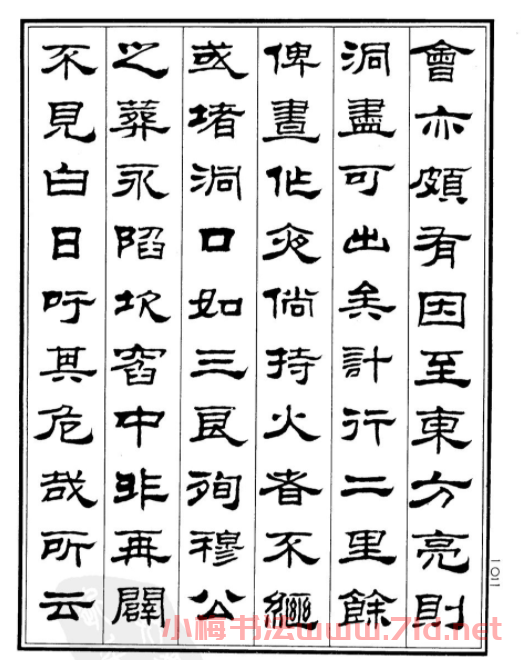 會亦頗有因至東方亮則
洞盡可出矣計行二里餘
俾晝作夜倘持火者不經
或堵洞口如三良殉穆公
之葬永陷坎窞中非再闢
不見白日吁其危哉所云
一〇二
小梅书法www.7fd.net